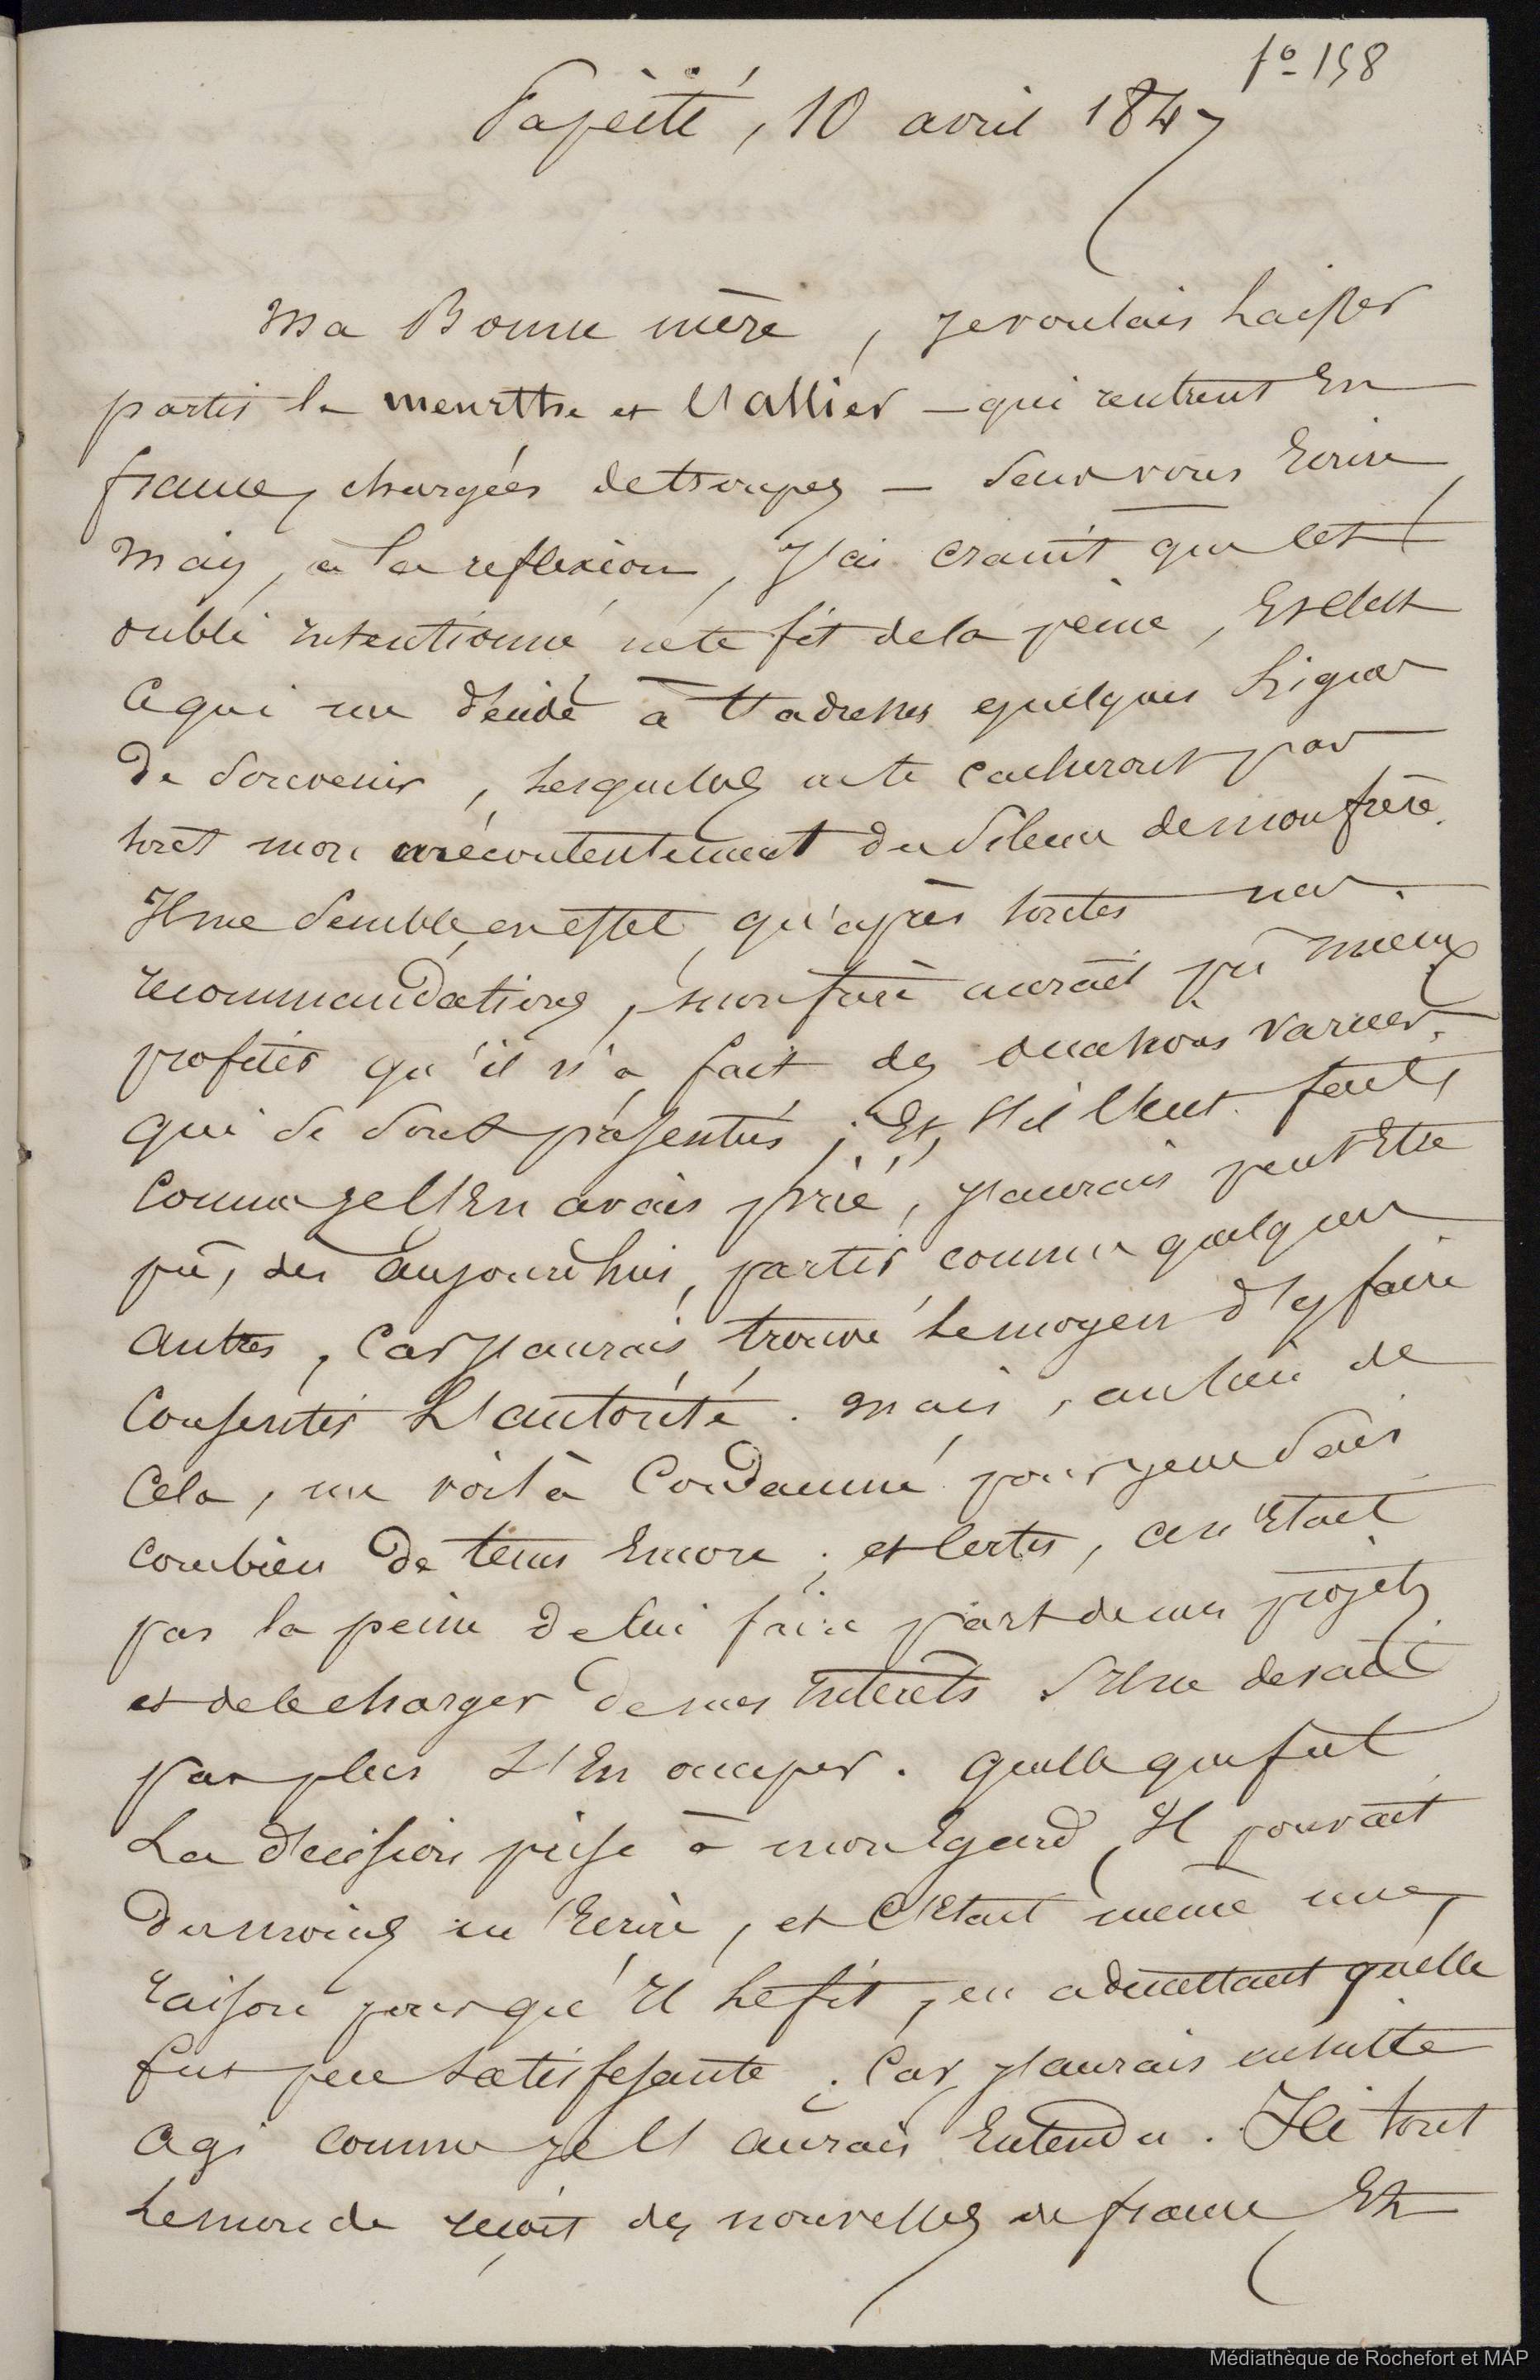 fº 158
Papeïté, 10 avril 1847
Ma Bonne mère, je voulais laisser
partir la meurthe et l'allier — qui rentrent En
france, chargées de troupes — sans vous Ecrire,
mais, a la reflexion, j'ai craint que cet
oubli intentionné ne te fit de la peine, Et c'est
ce qui me décide à t'adresser quelques lignes
de souvenir, lesquelles ne te cacheront pas
tout mon mécontentement du silence de mon frère.
Il me semble, en effet, qu'après toutes mes
recommandations, mon frère aurait pû mieux
profiter qu'il n'a fait des occasions variées
qui se sont présentées; Et, s'il l'eut fait,
comme je l'En avais prié, j'aurais peut Etre
pû, des aujourd'hui, partir comme quelques
autres, car j'aurais trouvé le moyen d'y faire
consentir L'autorité. mais, au lieu de
cela, me voilà condamné pour je ne sais
combien de tems Encore; et certes, ce n'Etait
pas la peine de lui faire part de mes projets
et de le charger de mes intérêts s'Il ne devait
pas plus s'En occuper. quelle que fut
La décision prise à mon Egard, Il pouvait
du moins m'Ecrire, et c'Etait même une
raison pour qu'Il le fit, en admettant qu'elle
fut peu satisfesante; car j'aurais ensuite
agi comme je l'aurais Entendu. Ici tout
le monde reçoit des nouvelles de france Et
Médiathèque de Rochefort et MAP